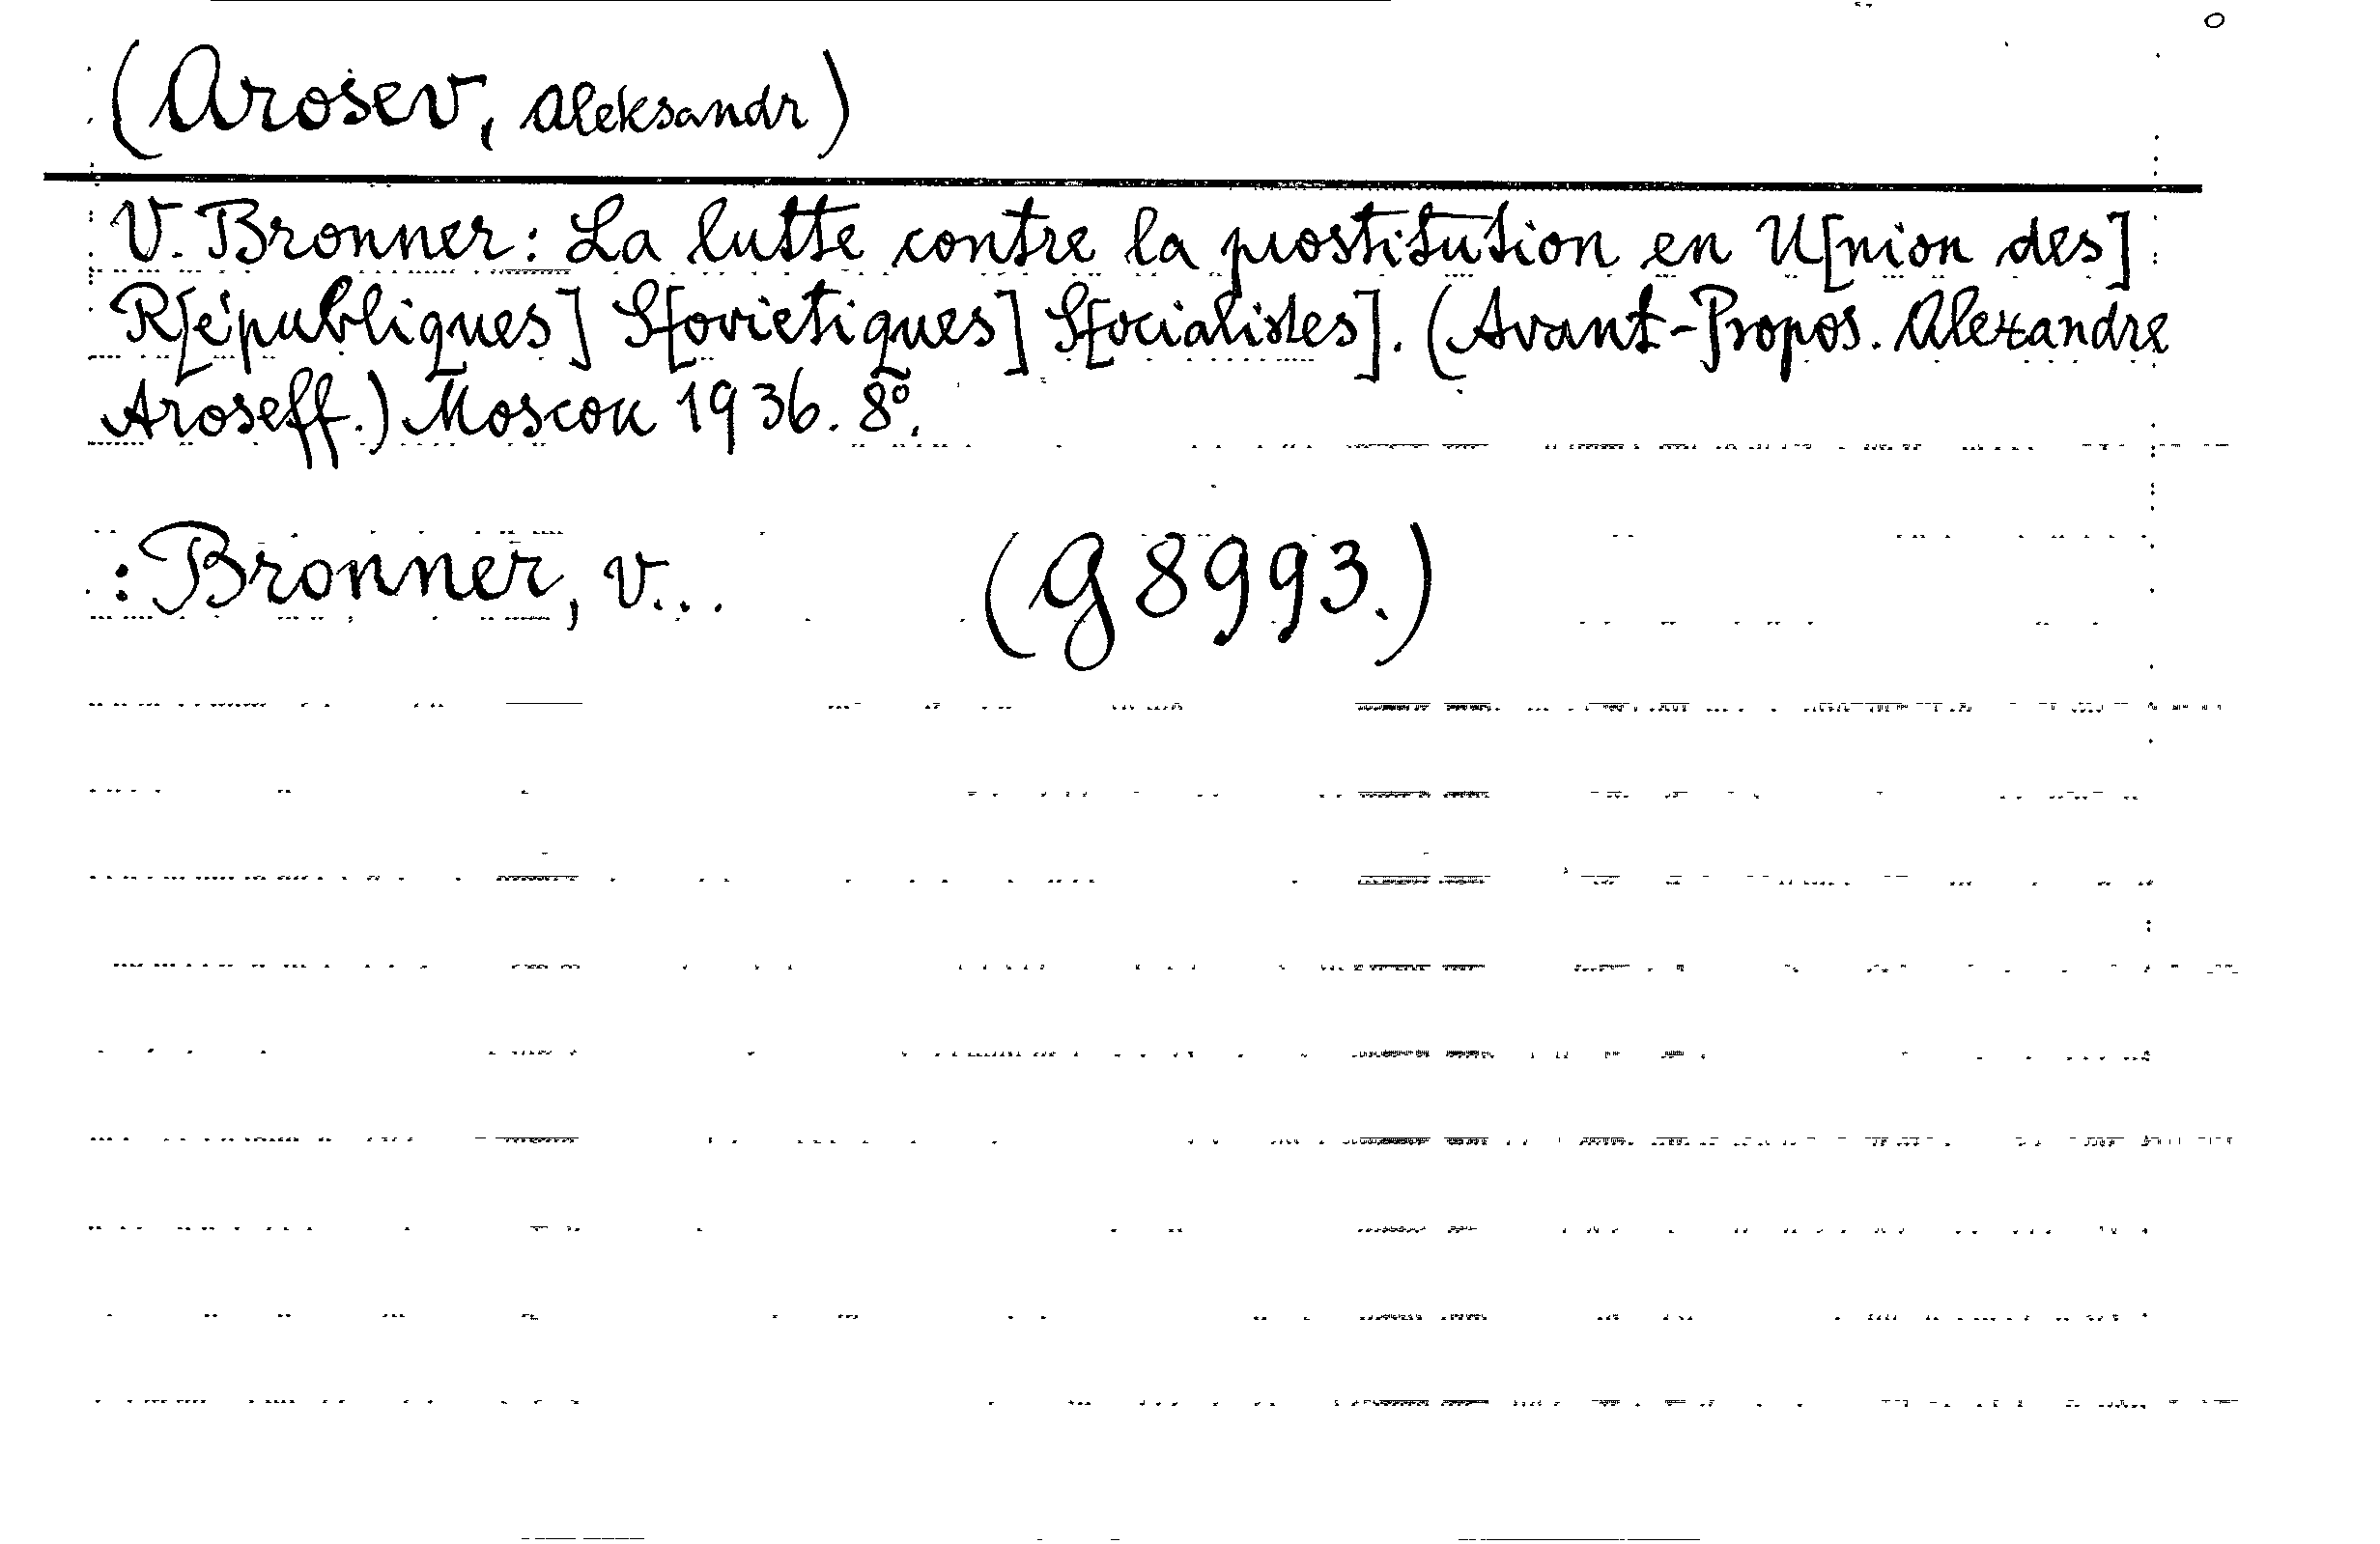 (Arosev, Aleksandr)
V. Bronner: La lutte contre la prostitution en U[nion des]
R[épubliques] S[oviétiques] S[ocialistes]. (Avant-Propos. Alexandre
Aroseff.) Moscou 1936. 8°.
: Bronner, V... (G 8993.)